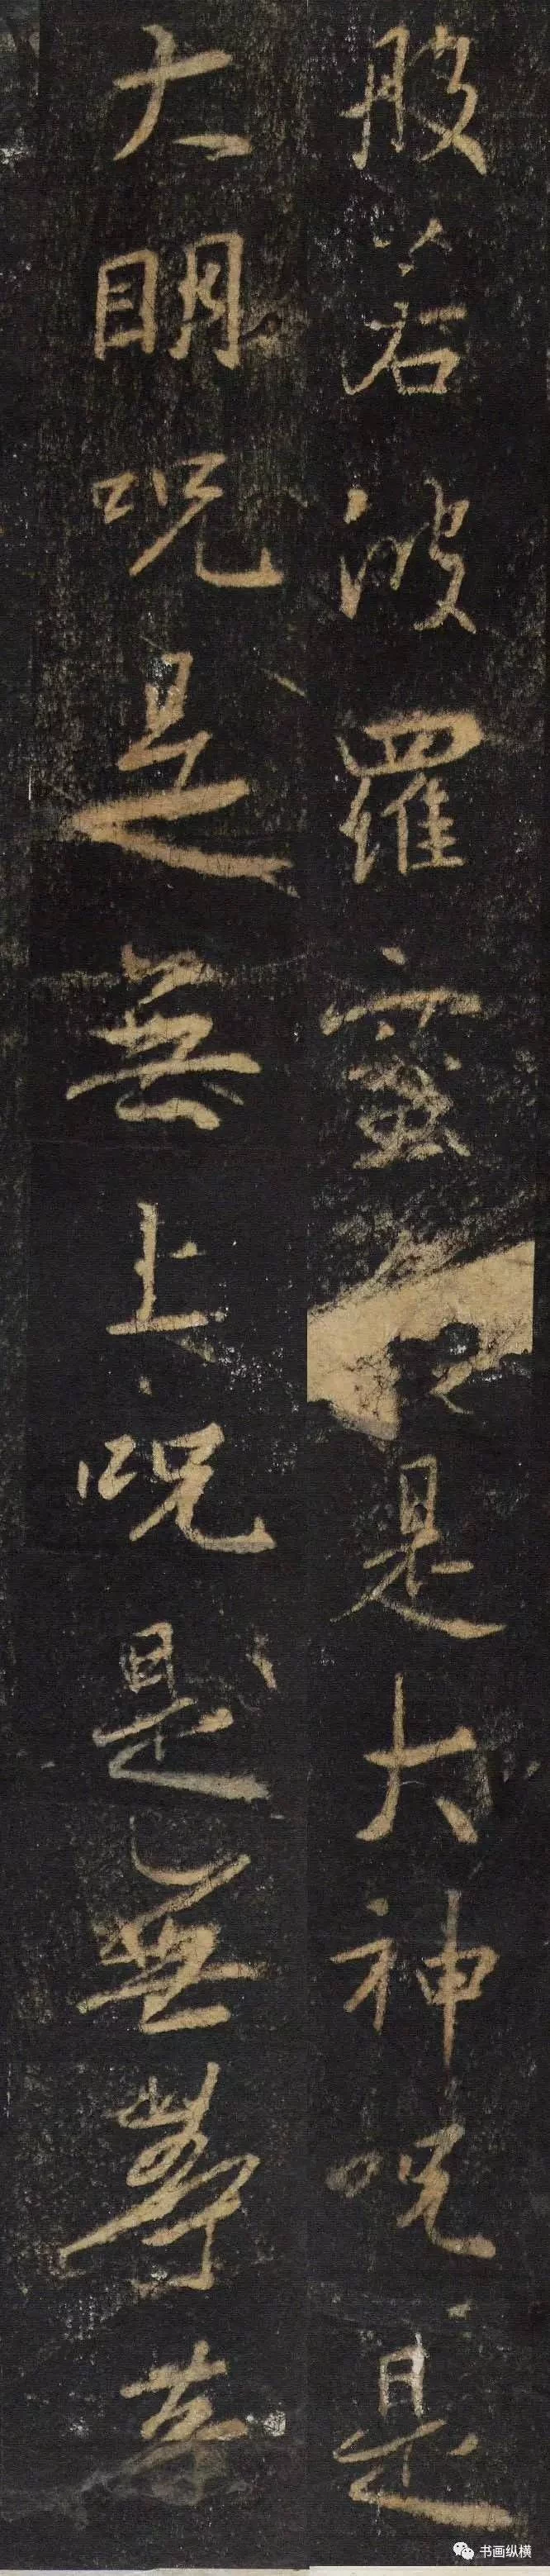 般若波羅蜜是大神呪是
大明呪是無上呪是無等等
书画纵横